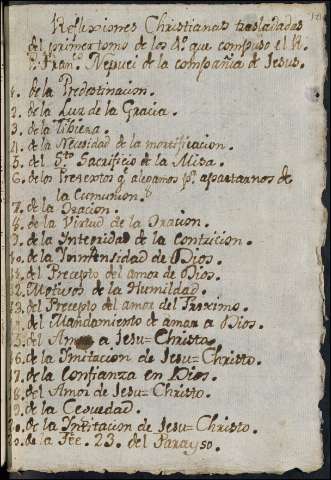 Reflexiones Christianas trasladadas
del primer tomo de los 4.º que compuso el R.
P. Fran.co Nepuei de la compañia de Jesus.
1. de la Predestinacion.
2. de la Luz de la Gracia.
3. de la Tibieza.
4. de la Necesidad de la mortificacion.
5. del S.to Sacrificio de la Misa.
6. de los Pretextos q. alegamos p.a apartarnos de
la Comunion.
7. de la Oracion.
8. de la Virtud de la Oracion.
9. de la Integridad de la Contricion.
10. de la Ynmensidad de Dios.
11. del Precepto del amor de Dios.
12. Motivos de la Humildad.
13. del Precepto del amor del Proximo.
14. del Mandamiento de amar a Dios.
15. del Amor a Jesu=Christo.
16. de la Imitacion de Jesu=Christo.
17. de la Confianza en Dios.
18. del Amor de Jesu=Christo.
19. de la Ceguedad.
20. de la Imitacion de Jesu=Christo.
de la Fee. 23. del Parayso.